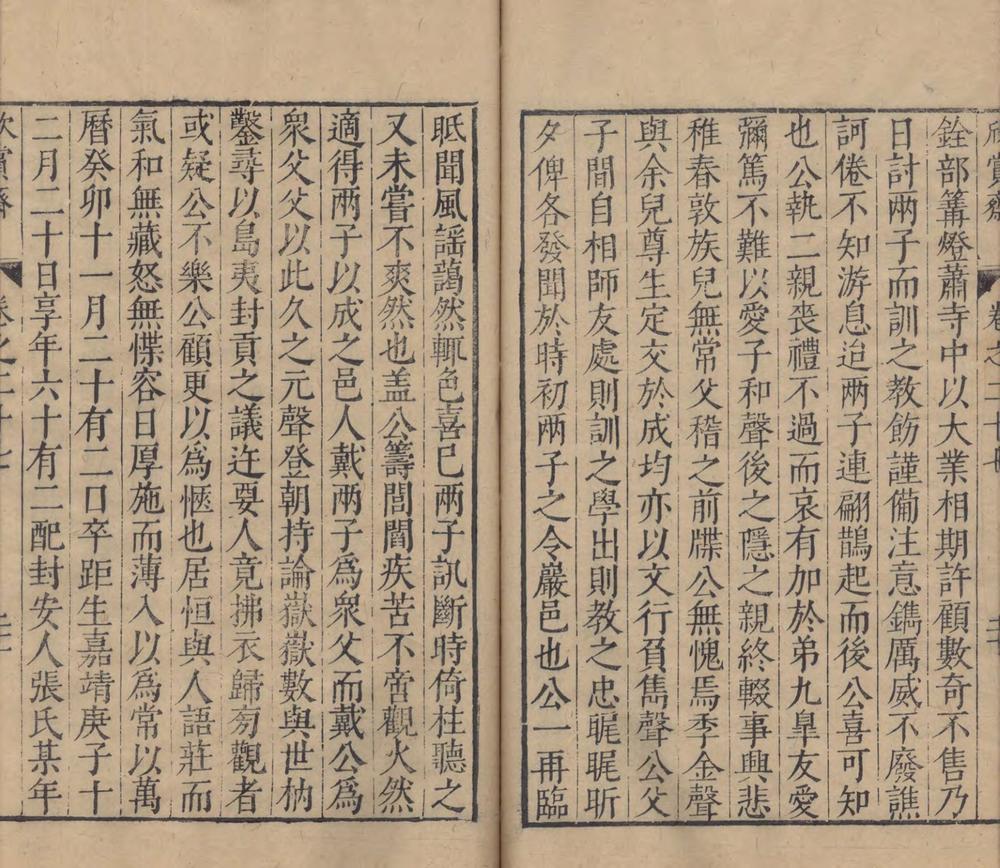 卷之二十七
銓部篝燈蕭寺中以大業相期許顧數奇不售乃
日討兩子而訓之教飭謹備注意鐫厲威不廢譙
訶倦不知游息迨兩子連翩鵲起而後公喜可知
也公執二親喪禮不過而哀有加於弟九臯友愛
彌篤不難以愛子和聲後之隱之親終輟事興悲
稚春敦族兒無常父稽之前牒公無愧焉季金聲
與余兒尊生定交於成均亦以文行負雋聲公父
子間自相師友處則訓之學出則教之忠昵昵昕
夕俾各發聞於時初兩子之令嚴邑也公一再臨
眂聞風謠藹然輒色喜已兩子訊斷時倚柱聽之
又未嘗不爽然也盖公籌閭閻疾苦不啻觀火然
適得兩子以成之邑人戴兩子為衆父而戴公為
衆父父以此久之元聲登朝持論嶽嶽數與世枘
鑿尋以島夷封貢之議迕要人竟拂衣歸旁觀者
或疑公不樂公顧更以為愜也居恒與人語莊而
氣和無藏怒無惵容日厚施而薄入以為常以萬
曆癸卯十一月二十有二口卒距生嘉靖庚子十
二月二十日享年六十有二配封安人張氏某年
賞齋 卷之二十七